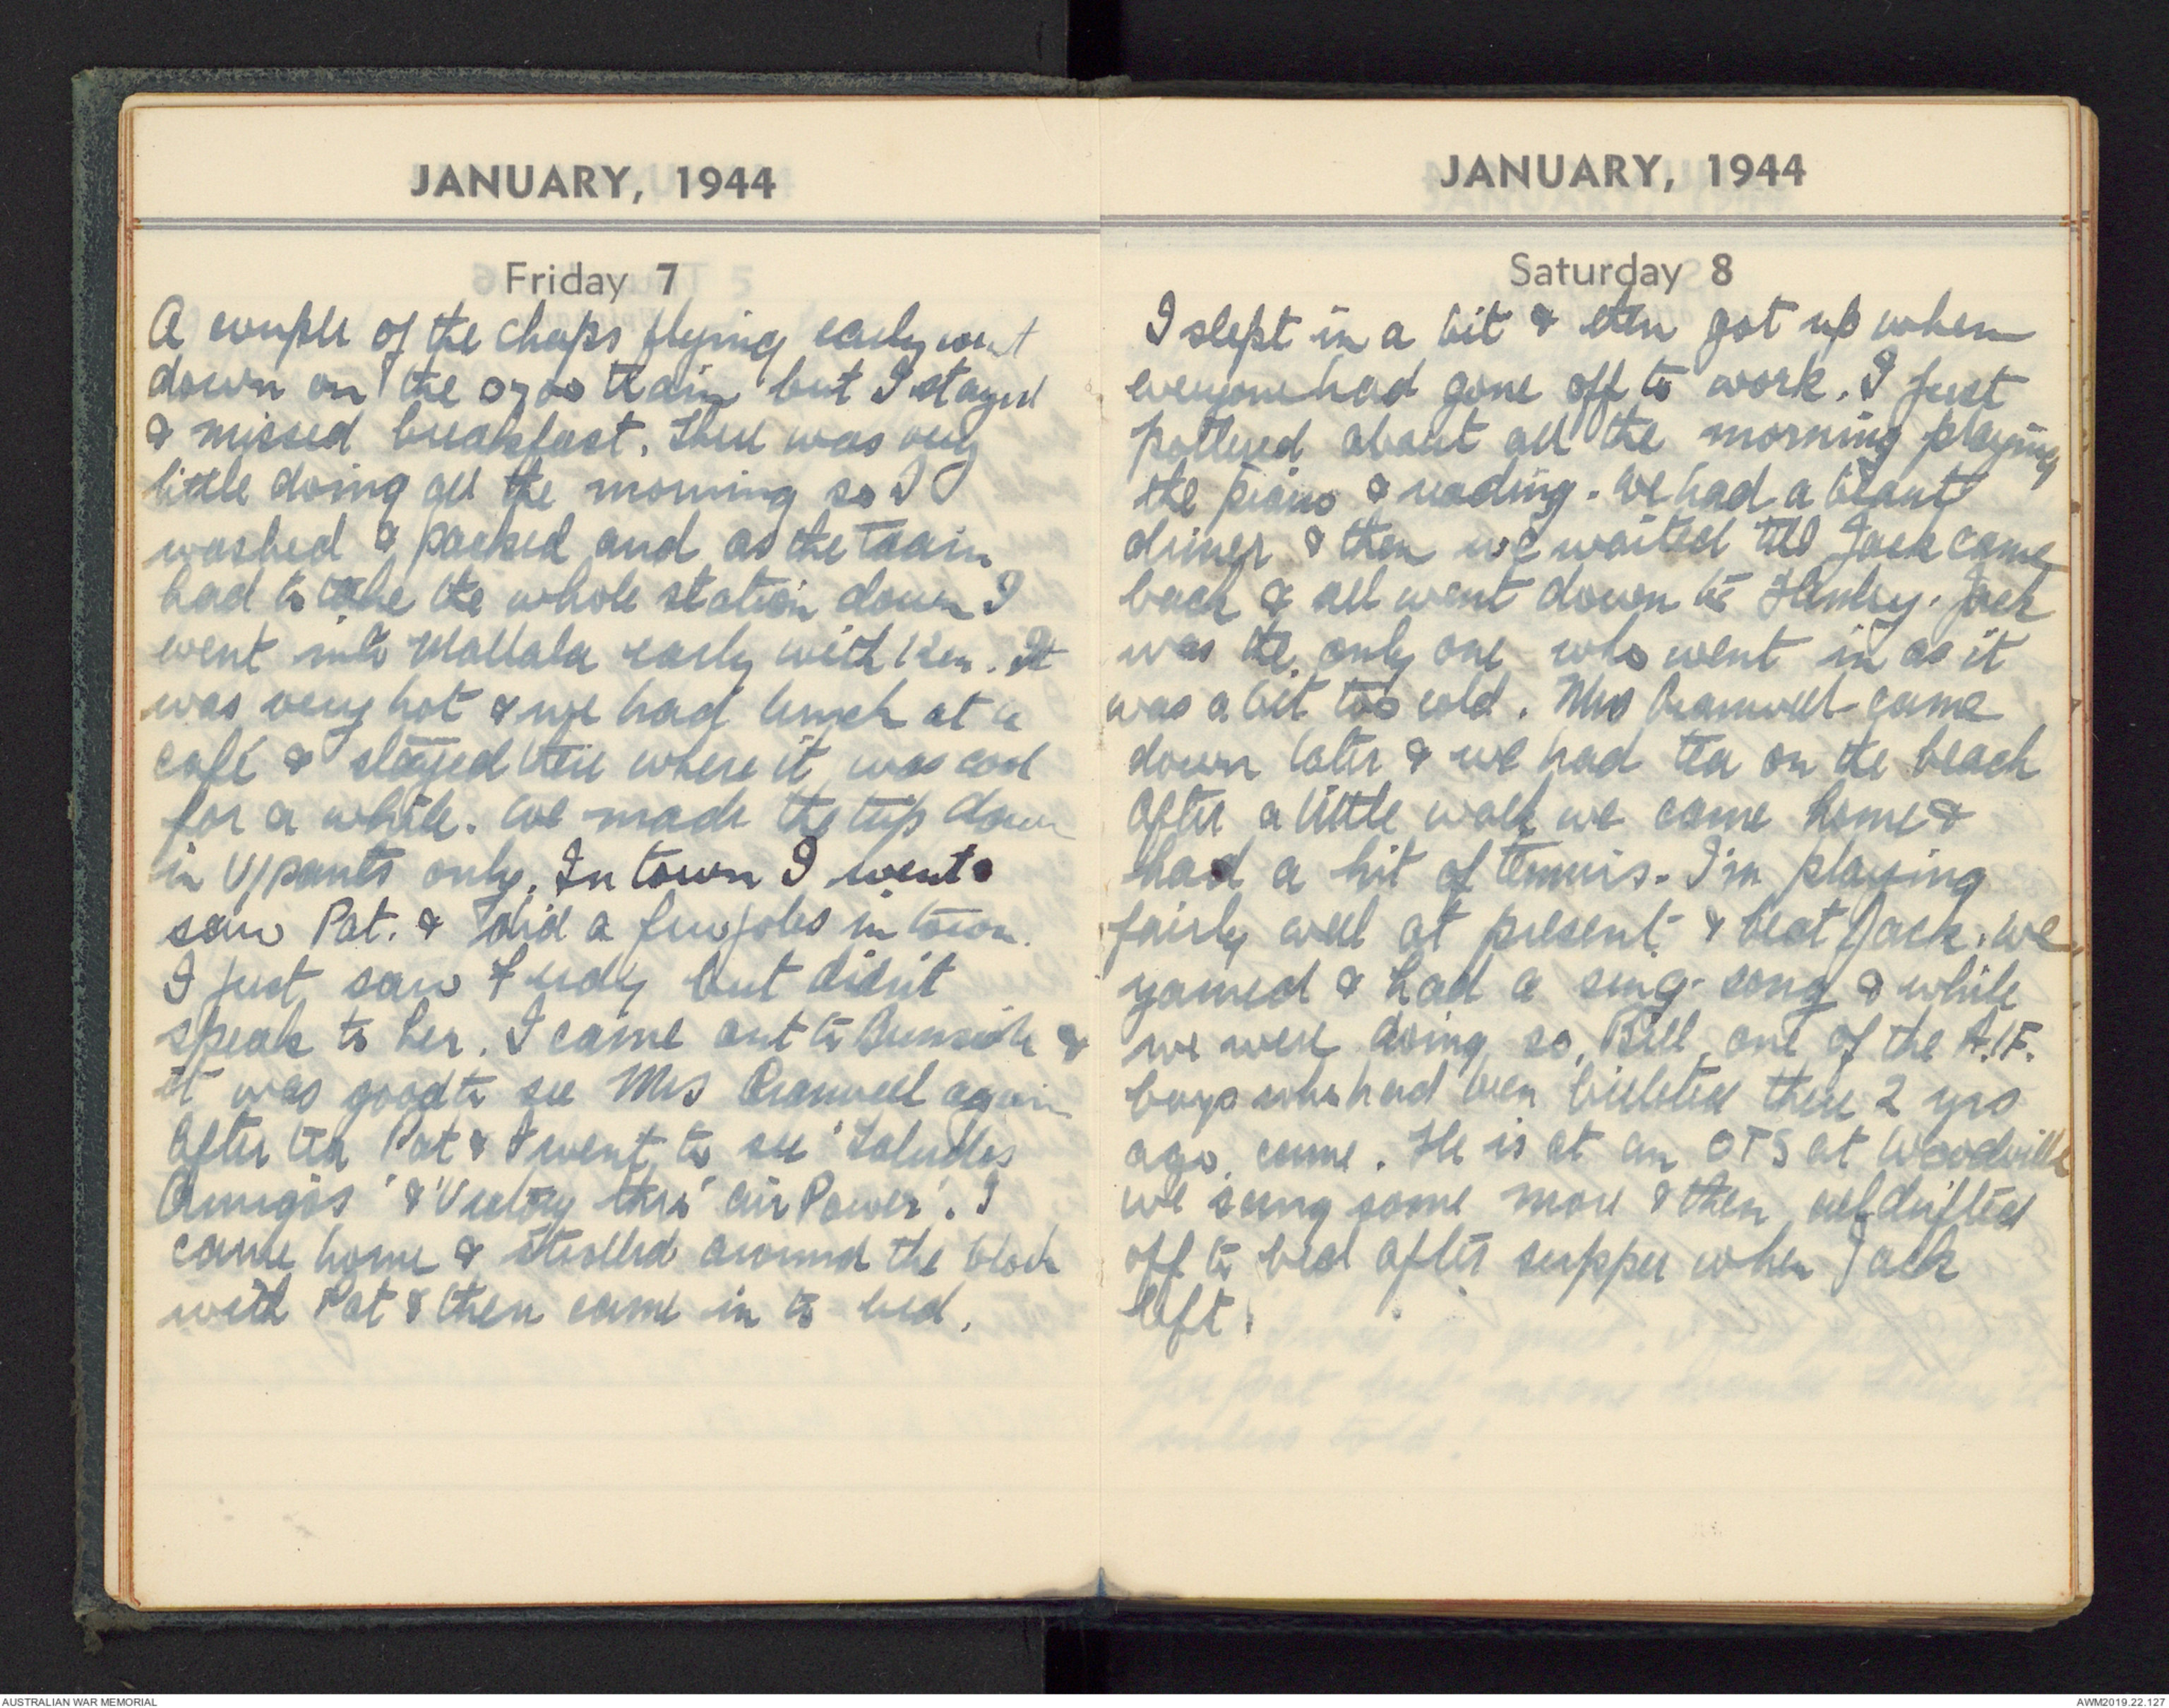 JANUARY, 1944
Friday 7
A couple of the chaps flying early went
down on the 0700 train but I stayed
& missed breakfast. There was very
little doing all the morning so I
washed & packed and as the train
had to take the whole station down I
went into Mallala early with Ken. It
was very hot & we had lunch at a
café & stayed there where it was cool
for a while. We made the trip down
in U/pants only. In town I went &
saw Pat. & did a few jobs in town.
I just saw Judy but didn't
speak to her. I came out to Burnside &
it was good to see Mrs Cramwell again
After tea Pat & I went to see 'Saludos
Amigos' & 'Victory thro' Air Power'. I
came home & strolled around the block
with Pat & then came in to bed.
JANUARY, 1944
Saturday 8
I slept in a bit & then got up when
everyone had gone off to work. I just
pottered about all the morning playing
the piano & reading. We had a beaut
dinner & then we waited till Jack came
back & all went down to Henley. Jack
was the only one who went in as it
was a bit too cold. Mrs Cramwell came
down later & we had tea on the beach
After a little walk we came home &
had a hit of tennis. I'm playing
fairly well at present & beat Jack. We
yarned & had a sing-song & while
we were doing so, Bill, one of the A.I.F.
boys who had been billeted there 2 yrs
ago, came. He is at an OTS at Woodville
We sang some more & then all drifted
off to bed after supper when Jack
left.
AUSTRALIAN WAR MEMORIAL
AWM2019.22.127